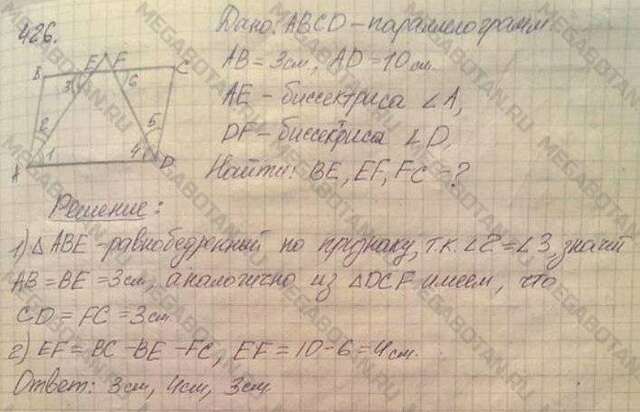 426.
Дано: ABCD - параллелограмм
AB = 3см, AD = 10 см.
AE - биссектриса ∠A,
DF - биссектриса ∠D,
Найти: BE, EF, FC = ?
B E F C
3 6
2 5
A 1 4 D
Решение:
1) △ ABE - равнобедренный по признаку, т.к. ∠2 = ∠3, значит
AB = BE = 3 см, аналогично из △DCF имеем, что
CD = FC = 3 см
2) EF = BC - BE - FC, EF = 10 - 6 = 4 см.
Ответ: 3 см, 4 см, 3 см
MEGABOTAN.RU